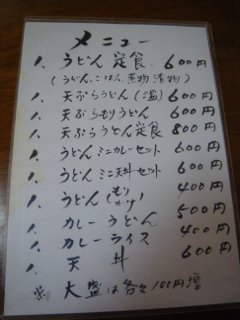 メニュー
1、うどん定食 600円
(うどん、ごはん、煮物、漬物)
1、天ぷらうどん(温) 600円
1、天ぷらもりうどん 600円
1、天ぷらうどん定食 800円
1、うどんミニカレーセット 600円
1、うどんミニ天丼セット 600円
1、うどん(もり かけ) 400円
1、カレーうどん 500円
1、カレーライス 400円
1、天丼 600円
※ 大盛は各々100円増